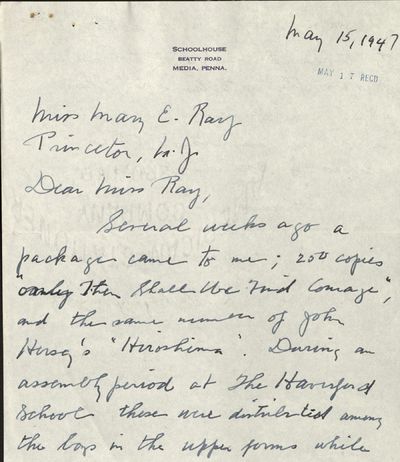 May 15, 1947
SCHOOLHOUSE
BEATTY ROAD
MEDIA, PENNA.
MAY 17 RECD
Miss Mary E. Ray
Princeton, N.J.
Dear Miss Ray,
Several weeks ago a
package came to me; 200 copies
"Only Then Shall We Find Courage",
and the same number of John
Hersey's "Hiroshima". During an
assembly period at The Haverford
School these were distributed among
the boys in the upper forms while